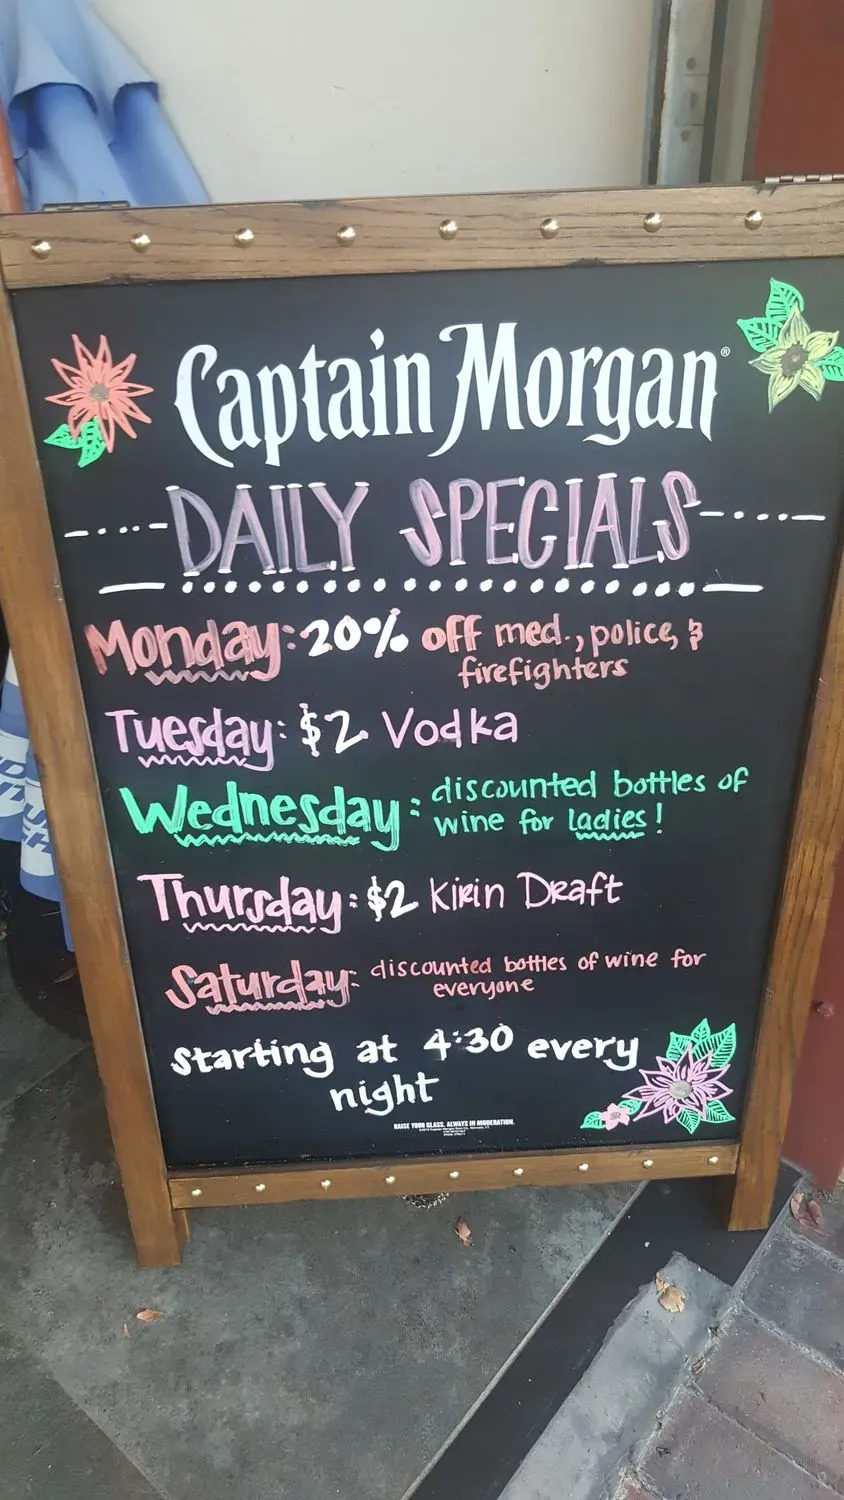 Captain Morgan®
DAILY SPECIALS
Monday: 20% off med., police, &
firefighters
Tuesday: $2 Vodka
Wednesday: discounted bottles of
wine for ladies!
Thursday: $2 Kirin Draft
Saturday: discounted bottles of wine for
everyone
Starting at 4:30 every
night
RAISE YOUR GLASS. ALWAYS IN MODERATION.